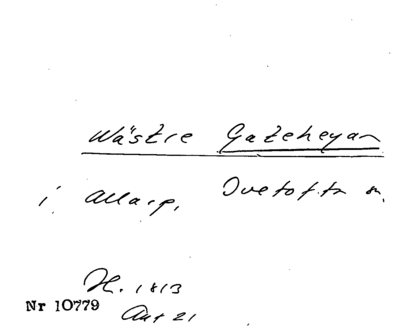 Wästre Gateheyan
i Allarp, Tvetofta sn.
H. 1813
Nr 10779
Akt 21